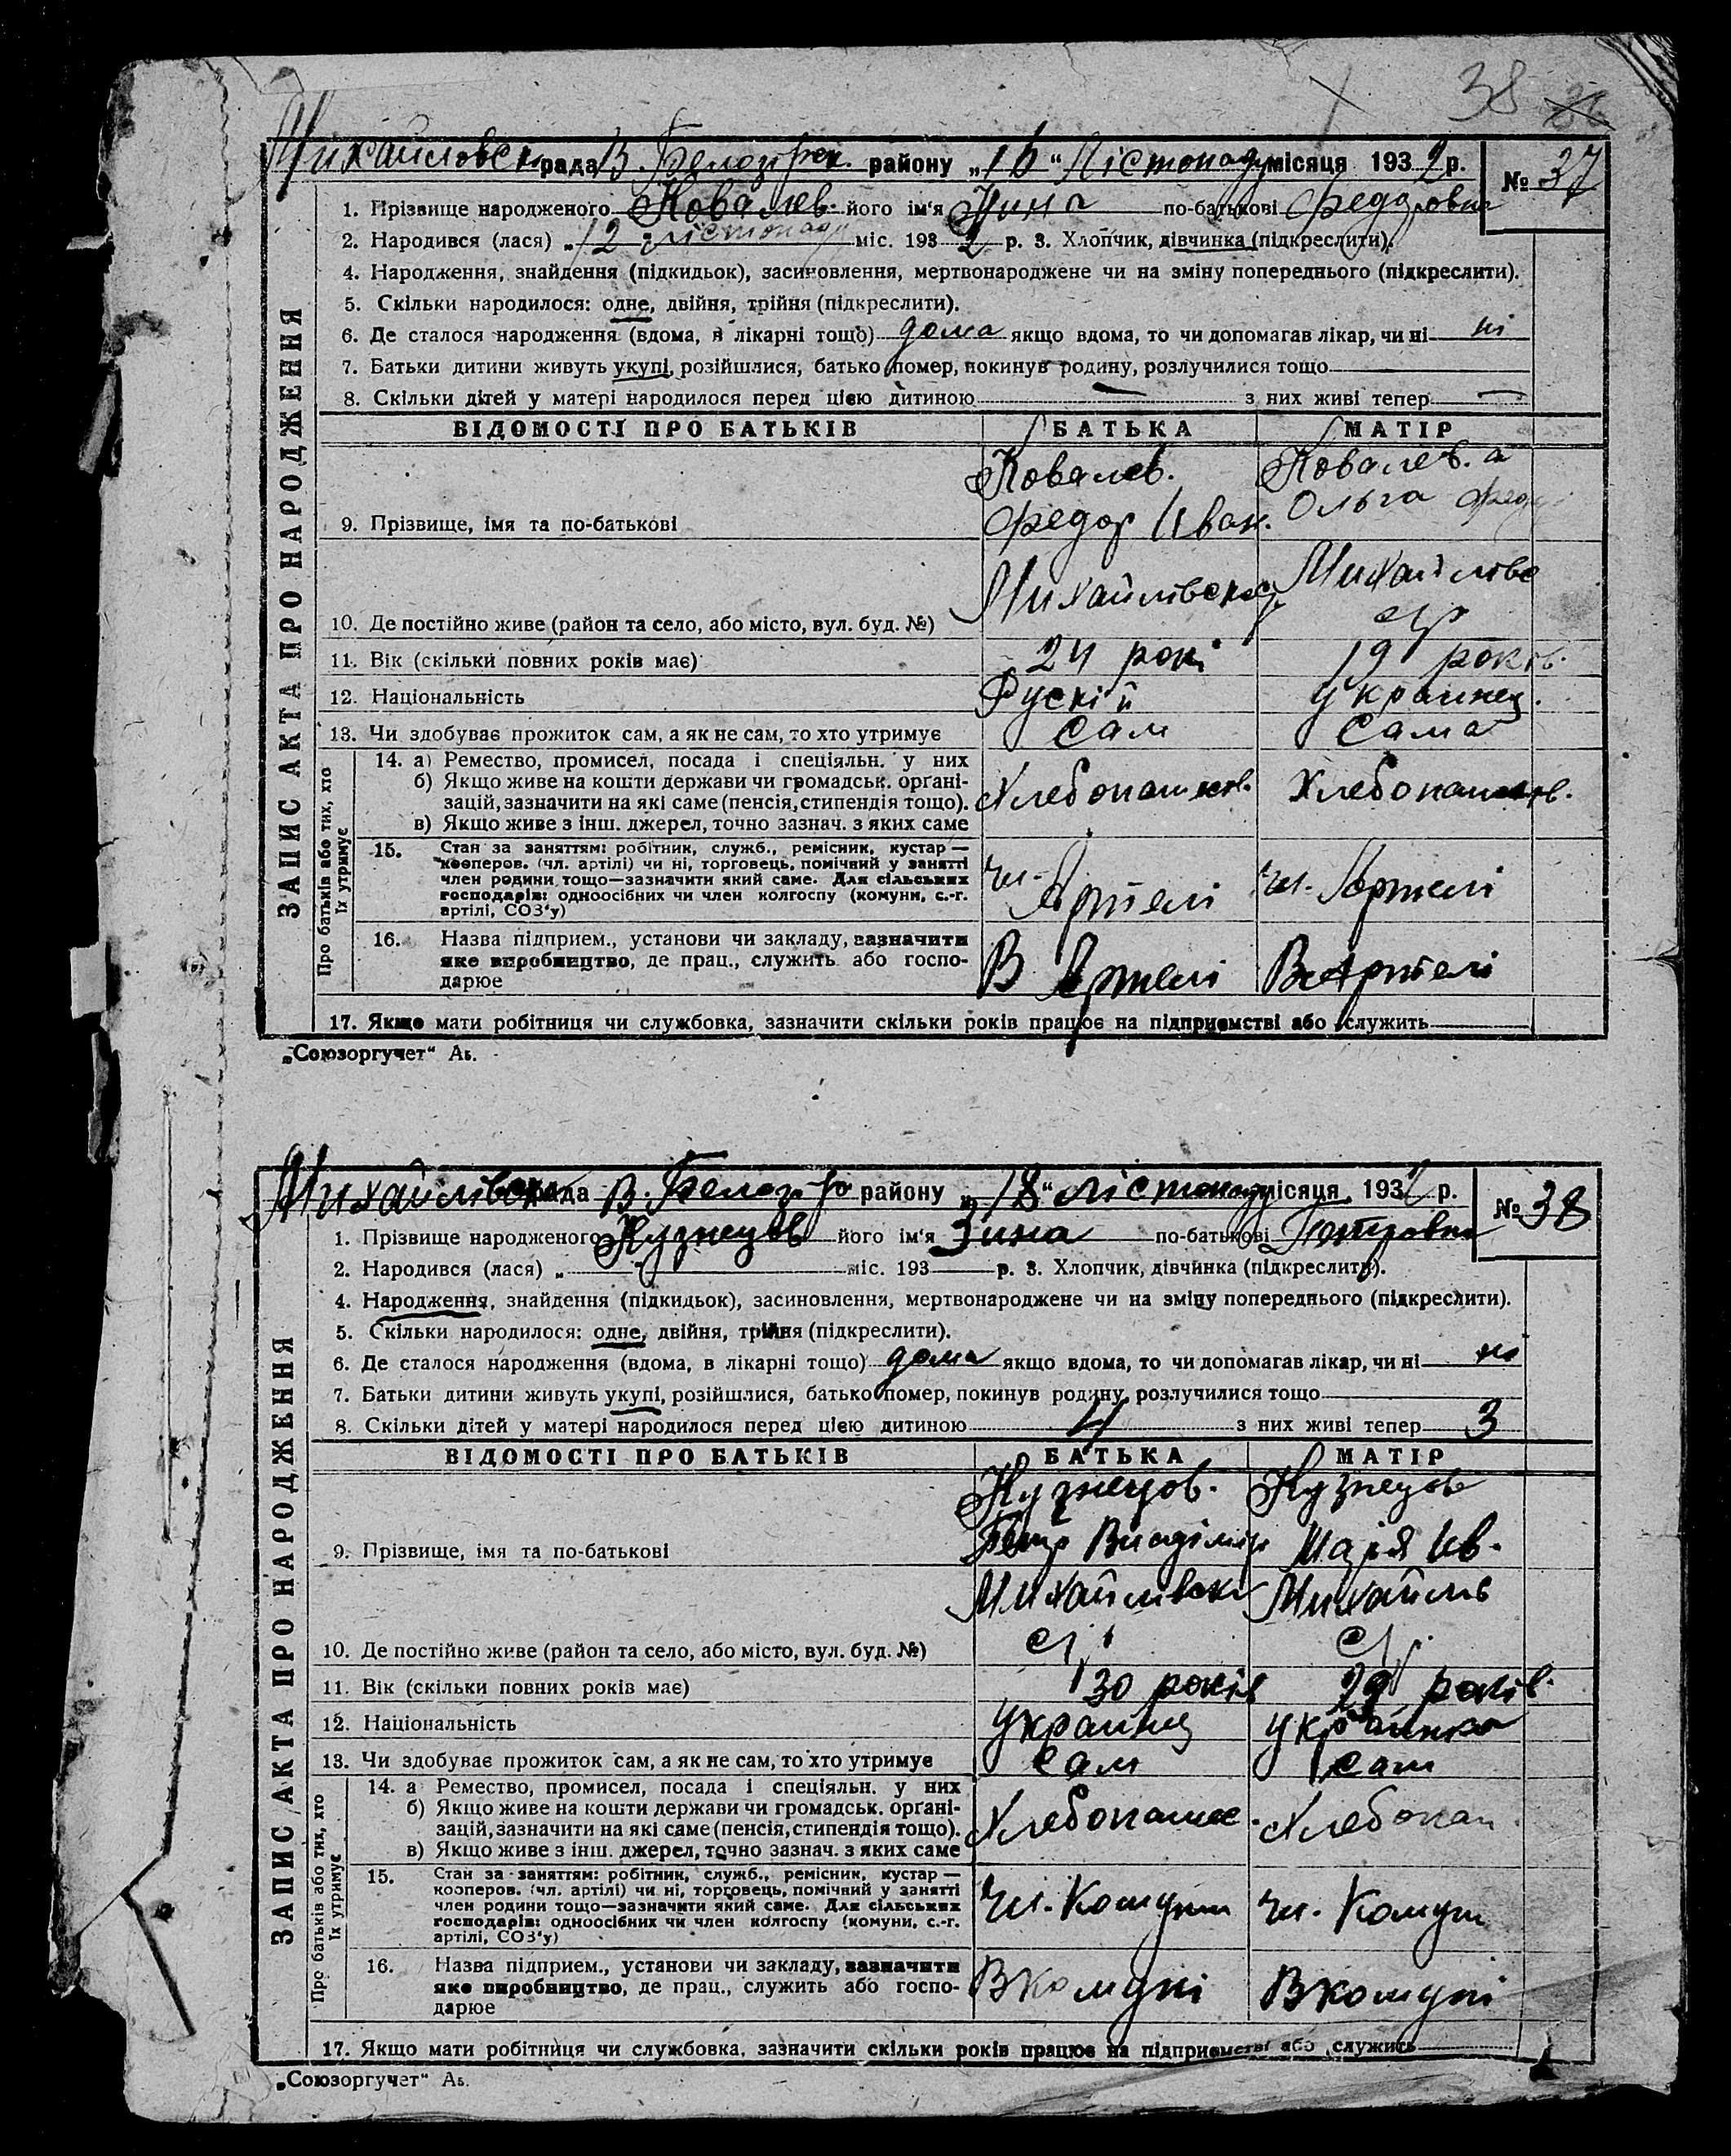 38
Михайловск рада В. Белозірск. району „16“ Лістопаду місяця 1932 р. № 37
1. Прізвище народженого Ковалев. його ім'я Нина по-батькові Федоровна
2. Народився (лася) „12 лістопаду міс. 1932 р. 3. Хлопчик, дівчинка (підкреслити).
4. Народження, знайдення (підкидьок), засиновлення, мертвонароджене чи на зміну попереднього (підкреслити).
5. Скільки народилося: одне, двійня, трійня (підкреслити).
6. Де сталося народження (вдома, в лікарні тощо) дома якщо вдома, то чи допомагав лікар, чи ні ні
7. Батьки дитини живуть укупі, розійшлися, батько помер, покинув родину, розлучилися тощо
8. Скільки дітей у матері народилося перед цією дитиною — з них живі тепер —
ЗАПИС АКТА ПРО НАРОДЖЕННЯ
ВІДОМОСТІ ПРО БАТЬКІВ БАТЬКА МАТІР
Ковалев. Ковалев.а
9. Прізвище, імя та по-батькові Федор Иван. Ольга Фед
Михайлівск Михайлівс
10. Де постійно живе (район та село, або місто, вул. буд. №) с/р
11. Вік (скільки повних років має) 24 рокі 19 років.
12. Національність Рускій украинец.
13. Чи здобуває прожиток сам, а як не сам, то хто утримує сам сама
Про батьків або тих, хто їх утримує
14. а) Ремество, промисел, посада і спеціяльн. у них
б) Якщо живе на кошти держави чи громадськ. органі-
зацій, зазначити на які саме (пенсія, стипендія тощо). Хлебопашств. Хлебопашств.
в) Якщо живе з інш. джерел, точно зазнач. з яких саме
15. Стан за заняттям: робітник, служб., ремісник, кустар —
кооперов. (чл. артілі) чи ні, торговець, помічний у занятті
член родини тощо—зазначити який саме. Для сільських
господарів: одноосібних чи член колгоспу (комуни, с.-г.
артілі, СОЗ'у) чл. Артелі чл. Артелі
16. Назва підприєм., установи чи закладу, зазначити
яке виробництво, де прац., служить або госпо-
дарює В Артелі В Артелі
17. Якщо мати робітниця чи службовка, зазначити скільки років працює на підприємстві або служить
„Союзоргучет“ Аь.
Михайлівск рада В. Белозір району „18“ лістопаду місяця 1932 р. № 38
1. Прізвище народженого Кузнецов його ім'я Зина по-батькові Петровна
2. Народився (лася) „ міс. 193 р. 3. Хлопчик, дівчинка (підкреслити).
4. Народження, знайдення (підкидьок), засиновлення, мертвонароджене чи на зміну попереднього (підкреслити).
5. Скільки народилося: одне, двійня, трійня (підкреслити).
6. Де сталося народження (вдома, в лікарні тощо) дома якщо вдома, то чи допомагав лікар, чи ні ні
7. Батьки дитини живуть укупі, розійшлися, батько помер, покинув родину, розлучилися тощо
8. Скільки дітей у матері народилося перед цією дитиною 4 з них живі тепер 3
ЗАПИС АКТА ПРО НАРОДЖЕННЯ
ВІДОМОСТІ ПРО БАТЬКІВ БАТЬКА МАТІР
Кузнецов. Кузнецов
9. Прізвище, імя та по-батькові Петр Владімір Марія Ив.
Михайлівск Михайлів
10. Де постійно живе (район та село, або місто, вул. буд. №) с/р с/р
11. Вік (скільки повних років має) 30 років 29 років.
12. Національність украинец украинка
13. Чи здобуває прожиток сам, а як не сам, то хто утримує сам сам
Про батьків або тих, хто їх утримує
14. а Ремество, промисел, посада і спеціяльн. у них
б) Якщо живе на кошти держави чи громадськ. органі-
зацій, зазначити на які саме (пенсія, стипендія тощо). Хлебопашес. Хлебопаш
в) Якщо живе з інш. джерел, точно зазнач. з яких саме
15. Стан за заняттям: робітник, служб., ремісник, кустар —
кооперов. (чл. артілі) чи ні, торговець, помічний у занятті
член родини тощо—зазначити який саме. Для сільських
господарів: одноосібних чи член колгоспу (комуни, с.-г.
артілі, СОЗ'у) чл. Комуни чл. Комун
16. Назва підприєм., установи чи закладу, зазначити
яке виробництво, де прац., служить або госпо-
дарює В комуні В комуні
17. Якщо мати робітниця чи службовка, зазначити скільки років працює на підприємстві або служить
„Союзоргучет“ Аь.